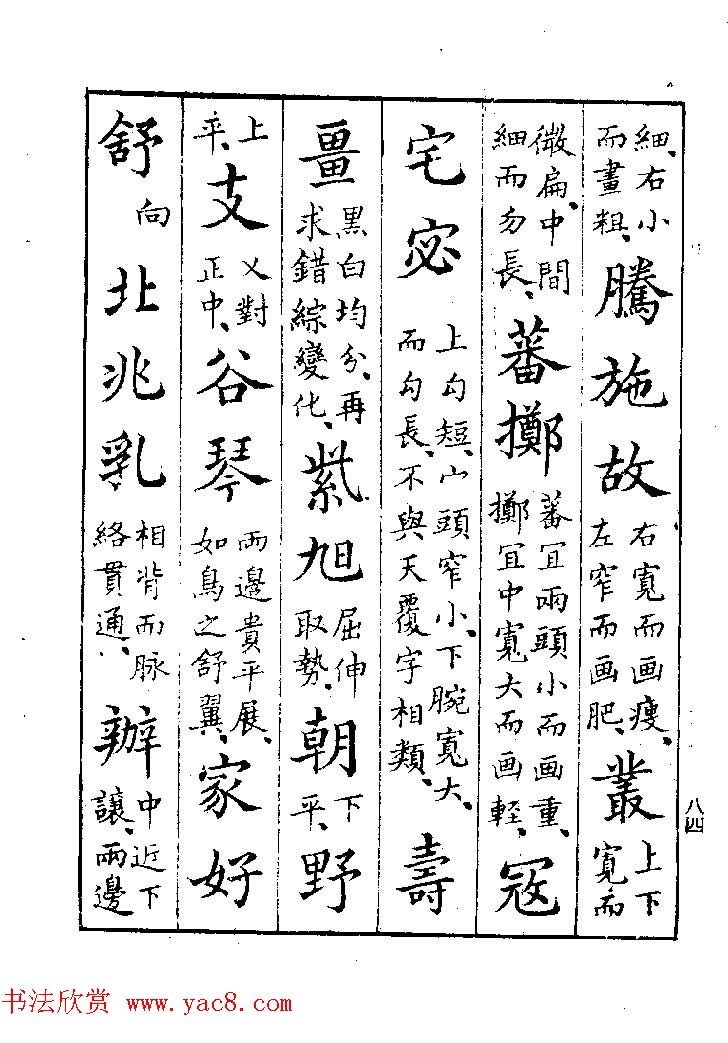 細、右小而畫粗、騰施故右寬而画瘦、左窄而画肥、叢上下寬而
微扁、中間細而勿長、蕃擲蕃宜兩頭小而画重、擲宜中寬大而画輕、冦
宅宓上勾短、宀頭窄小、下腕寬大、而勾長、不與天覆字相類、壽
畺黑白均分、再求錯綜變化、紫旭屈伸取勢、朝下平、野
上平、支乂對正中、谷琴兩邊貴平展、如鳥之舒翼、家好
舒向北兆乳相背而脉絡貫通、辦中近下讓、兩邊
八四
书法欣赏 www.yac8.com